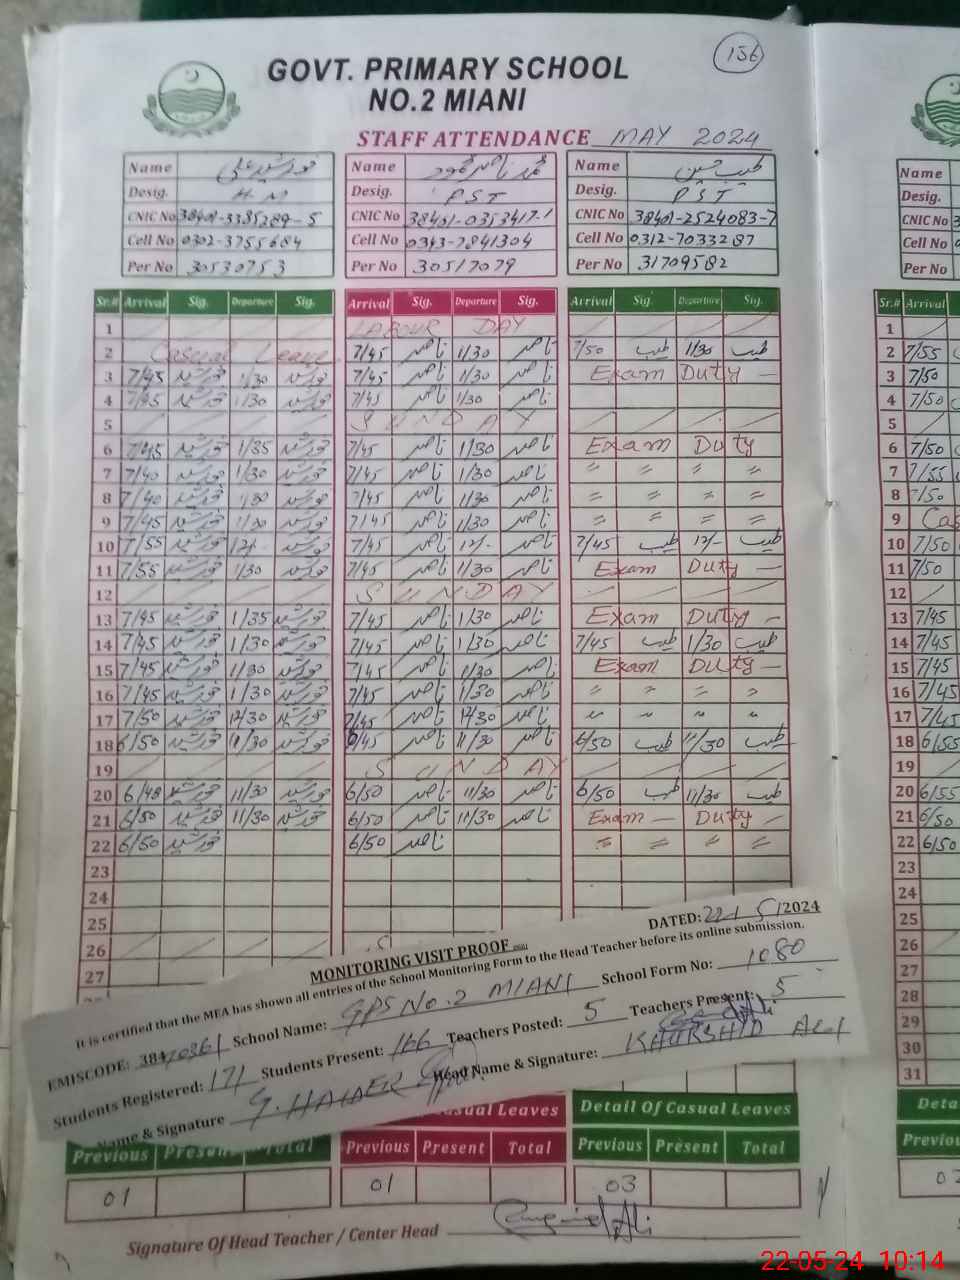 156
GOVT. PRIMARY SCHOOL
NO.2 MIANI
STAFF ATTENDANCE MAY 2024
Name خورشید علی Name محمد ناصر محمود Name طیب حسین Name
Desig. H M Desig. PST Desig. PST Desig.
CNIC No 38401-3385289-5 CNIC No 38401-0353417-1 CNIC No 38401-2524083-7 CNIC No
Cell No 0302-3755684 Cell No 0343-7841304 Cell No 0312-7033287 Cell No
Per No 30530753 Per No 30517079 Per No 31709582 Per No
Sr.# Arrival Sig. Departure Sig. Arrival Sig. Departure Sig. Arrival Sig. Departure Sig. Sr.# Arrival
1 LABOUR DAY 1
2 Casual Leave 7/45 ناصر 1/30 ناصر 7/50 طیب 1/30 طیب 2 7/55
3 7/45 خورشید 1/30 خورشید 7/45 ناصر 1/30 ناصر Exam Duty — 3 7/50
4 7/45 خورشید 1/30 خورشید 7/45 ناصر 1/30 ناصر 4 7/50
5 SUNDAY 5
6 7/45 خورشید 1/35 خورشید 7/45 ناصر 1/30 ناصر Exam Duty 6 7/50
7 7/40 خورشید 1/30 خورشید 7/45 ناصر 1/30 ناصر 〃 〃 〃 〃 7 7/55
8 7/40 خورشید 1/30 خورشید 7/45 ناصر 1/30 ناصر 〃 〃 〃 〃 8 7/50
9 7/45 خورشید 1/30 خورشید 7/45 ناصر 1/30 ناصر 〃 〃 〃 〃 9 Cas
10 7/55 خورشید 12/- خورشید 7/45 ناصر 12/- ناصر 7/45 طیب 12/- طیب 10 7/50
11 7/55 خورشید 1/30 خورشید 7/45 ناصر 1/30 ناصر Exam Duty — 11 7/50
12 SUNDAY 12
13 7/45 خورشید 1/35 خورشید 7/45 ناصر 1/30 ناصر Exam Duty — 13 7/45
14 7/45 خورشید 1/30 خورشید 7/45 ناصر 1/30 ناصر 7/45 طیب 1/30 طیب 14 7/45
15 7/45 خورشید 1/30 خورشید 7/45 ناصر 1/30 ناصر Exam Duty — 15 7/45
16 7/45 خورشید 1/30 خورشید 7/45 ناصر 1/30 ناصر 〃 〃 〃 〃 16 7/45
17 7/50 خورشید 12/30 خورشید 7/45 ناصر 12/30 ناصر 〃 〃 〃 〃 17 7/45
18 6/50 خورشید 11/30 خورشید 6/45 ناصر 11/30 ناصر 6/50 طیب 11/30 طیب 18 6/55
19 SUNDAY 19
20 6/48 خورشید 11/30 خورشید 6/50 ناصر 11/30 ناصر 6/50 طیب 11/30 طیب 20 6/55
21 6/50 خورشید 11/30 خورشید 6/50 ناصر 11/30 ناصر Exam — Duty — 21 6/50
22 6/50 خورشید 6/50 ناصر 〃 〃 〃 〃 22 6/50
23 23
24 24
25 25
26 S 26
27 27
28
29
30
31
MONITORING VISIT PROOF DATED: 22/5/2024
It is certified that the MEA has shown all entries of the School Monitoring Form to the Head Teacher before its online submission.
EMISCODE: 38420361 School Name: GPS No.2 MIANI School Form No: 1080
Students Registered: 171 Students Present: 166 Teachers Posted: 5 Teachers Present: 5
Name & Signature G. HAIDER Head Name & Signature: KHURSHID ALI
Casual Leaves Detail Of Casual Leaves Deta
Previous Present Total Previous Present Total Previous Present Total Previou
01 01 03 02
Signature Of Head Teacher / Center Head
22-05-24 10:14